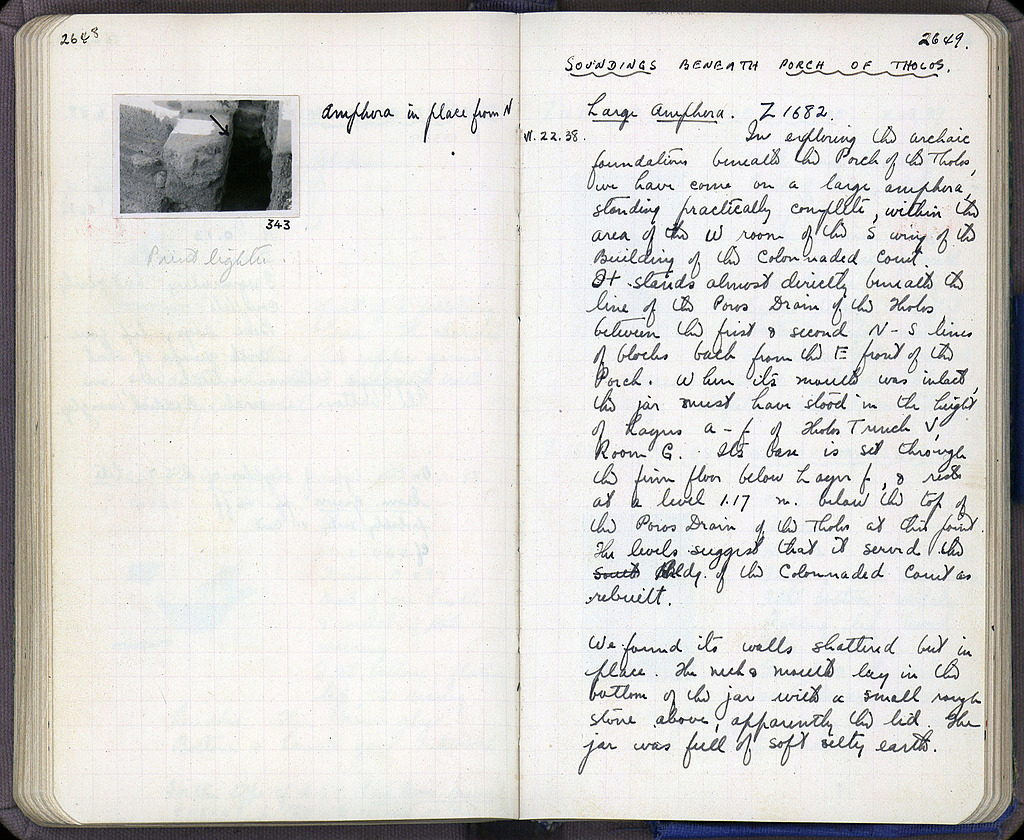 2648
Amphora in place from N
343
Print lighter
2649.
SOUNDINGS BENEATH PORCH OF THOLOS.
Large Amphora. Z 1682.
VI.22.38. In exploring the archaic
foundations beneath the Porch of the Tholos,
we have come on a large amphora,
standing practically complete, within the
area of the W room of the S wing of the
Building of the Colonnaded Court.
It stands almost directly beneath the
line of the Poros Drain of the Tholos,
between the first & second N-S lines
of blocks back from the E front of the
Porch. When its mouth was intact,
the jar must have stood in the height
of layers a-f of Tholos Trench V,
Room G. Its base is set through
the firm floor below layer f, & rests
at a level 1.17 m. below the top of
the Poros Drain of the Tholos at this point.
The levels suggest that it served the
South Bldg. of the Colonnaded Court as
rebuilt.
We found its walls shattered but in
place. The neck & mouth lay in the
bottom of the jar with a small rough
stone above, apparently the lid. The
jar was full of soft silty earth.